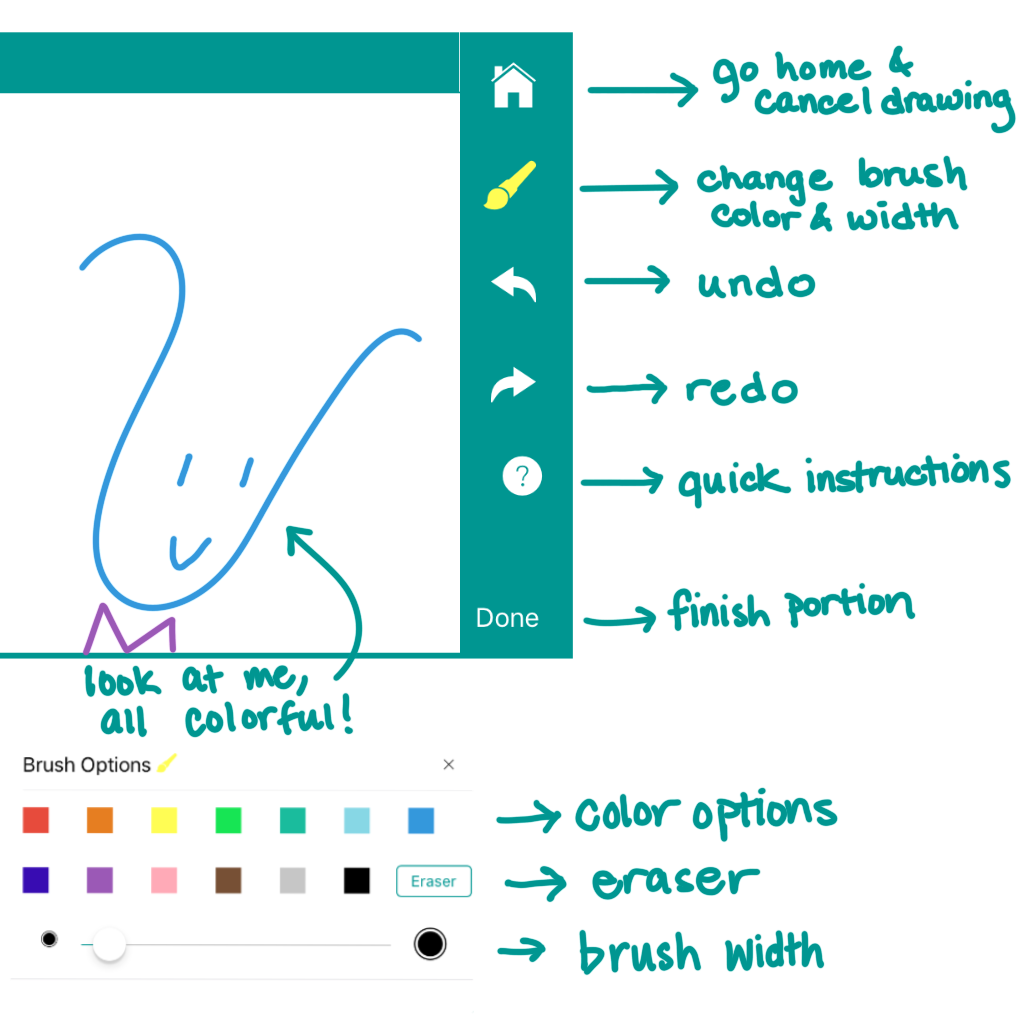 go home &
cancel drawing
change brush
color & width
undo
redo
?
quick instructions
Done
finish portion
look at me,
all colorful!
Brush Options
×
color options
Eraser
eraser
brush width